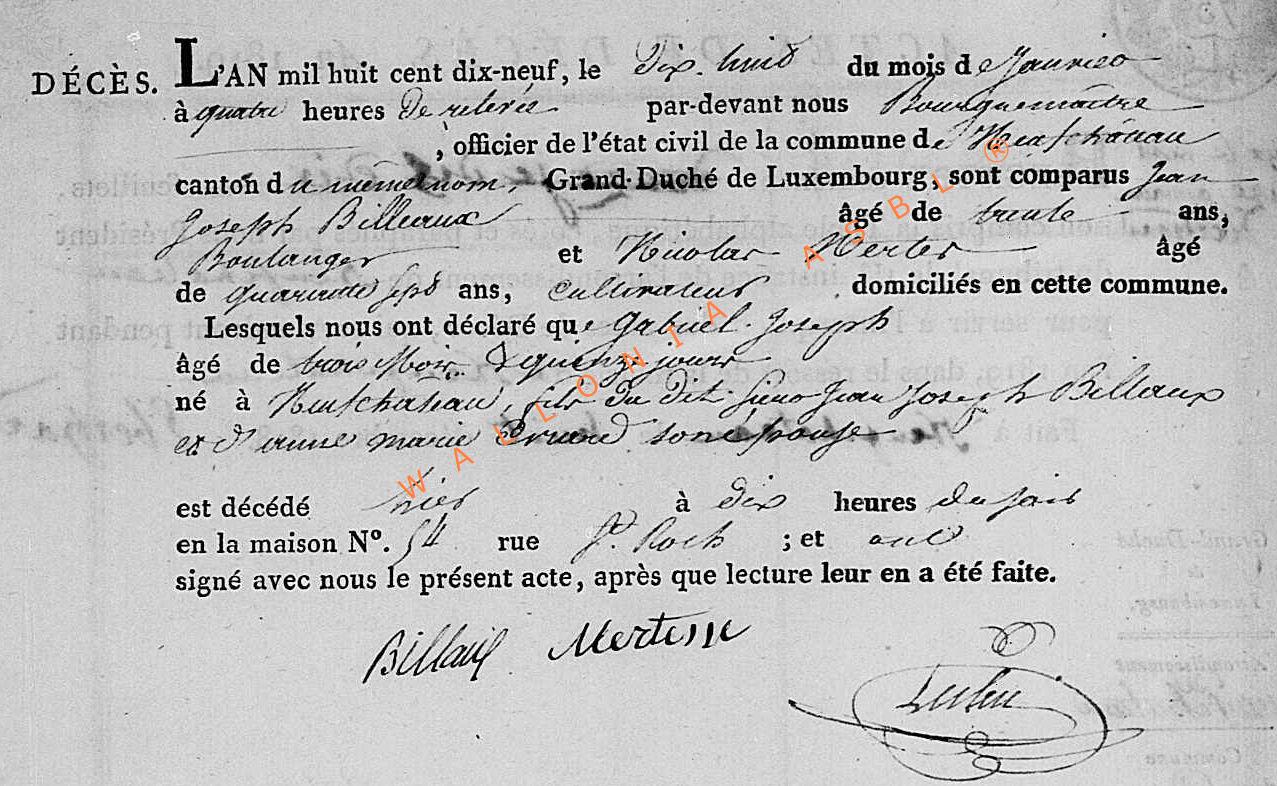 DÉCÈS. L'AN mil huit cent dix-neuf, le Dix-huit du mois de Janvier
à quatre heures De relevée par-devant nous Bourguemaître
, officier de l'état civil de la commune de Neufchâteau
canton du même nom, Grand-Duché de Luxembourg, sont comparus Jean
Joseph Billeaux âgé de trente ans,
Boulanger et Nicolas Mertes âgé
de quarante sept ans, cultivateur domiciliés en cette commune.
Lesquels nous ont déclaré que Gabriel Joseph
âgé de trois Mois & quinze jours
né à Neufchateau, fils du dit Sieur Jean Joseph Billaux
et d'anne marie son épouse
est décédé hier à dix heures du soir
en la maison N°. 54 rue St. Roch ; et ont
signé avec nous le présent acte, après que lecture leur en a été faite.
Mertesse
WALLONIA ASBL ®